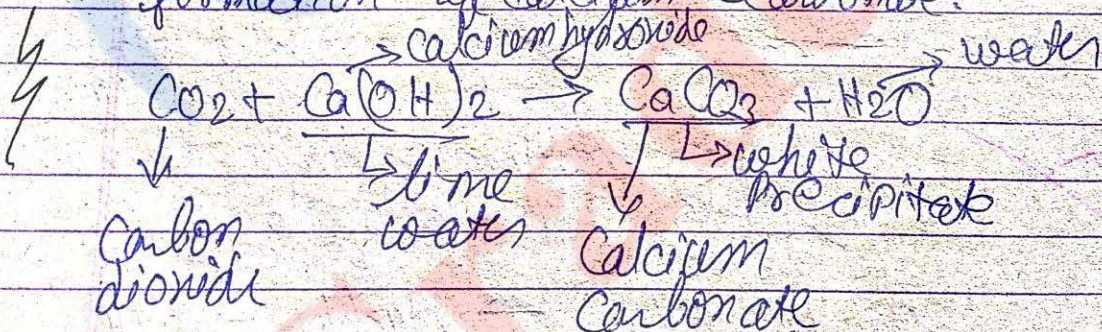 formation of calcium carbonate.
→ calcium hydroxide → water
CO2 + Ca(OH)2 → CaCO3 + H2O
↓ ↳ lime ↓ ↳ white
Carbon water precipitate
dioxide Calcium
Carbonate